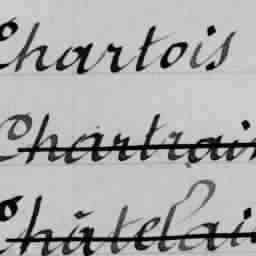 Chartois
Chartrain
Châtelain